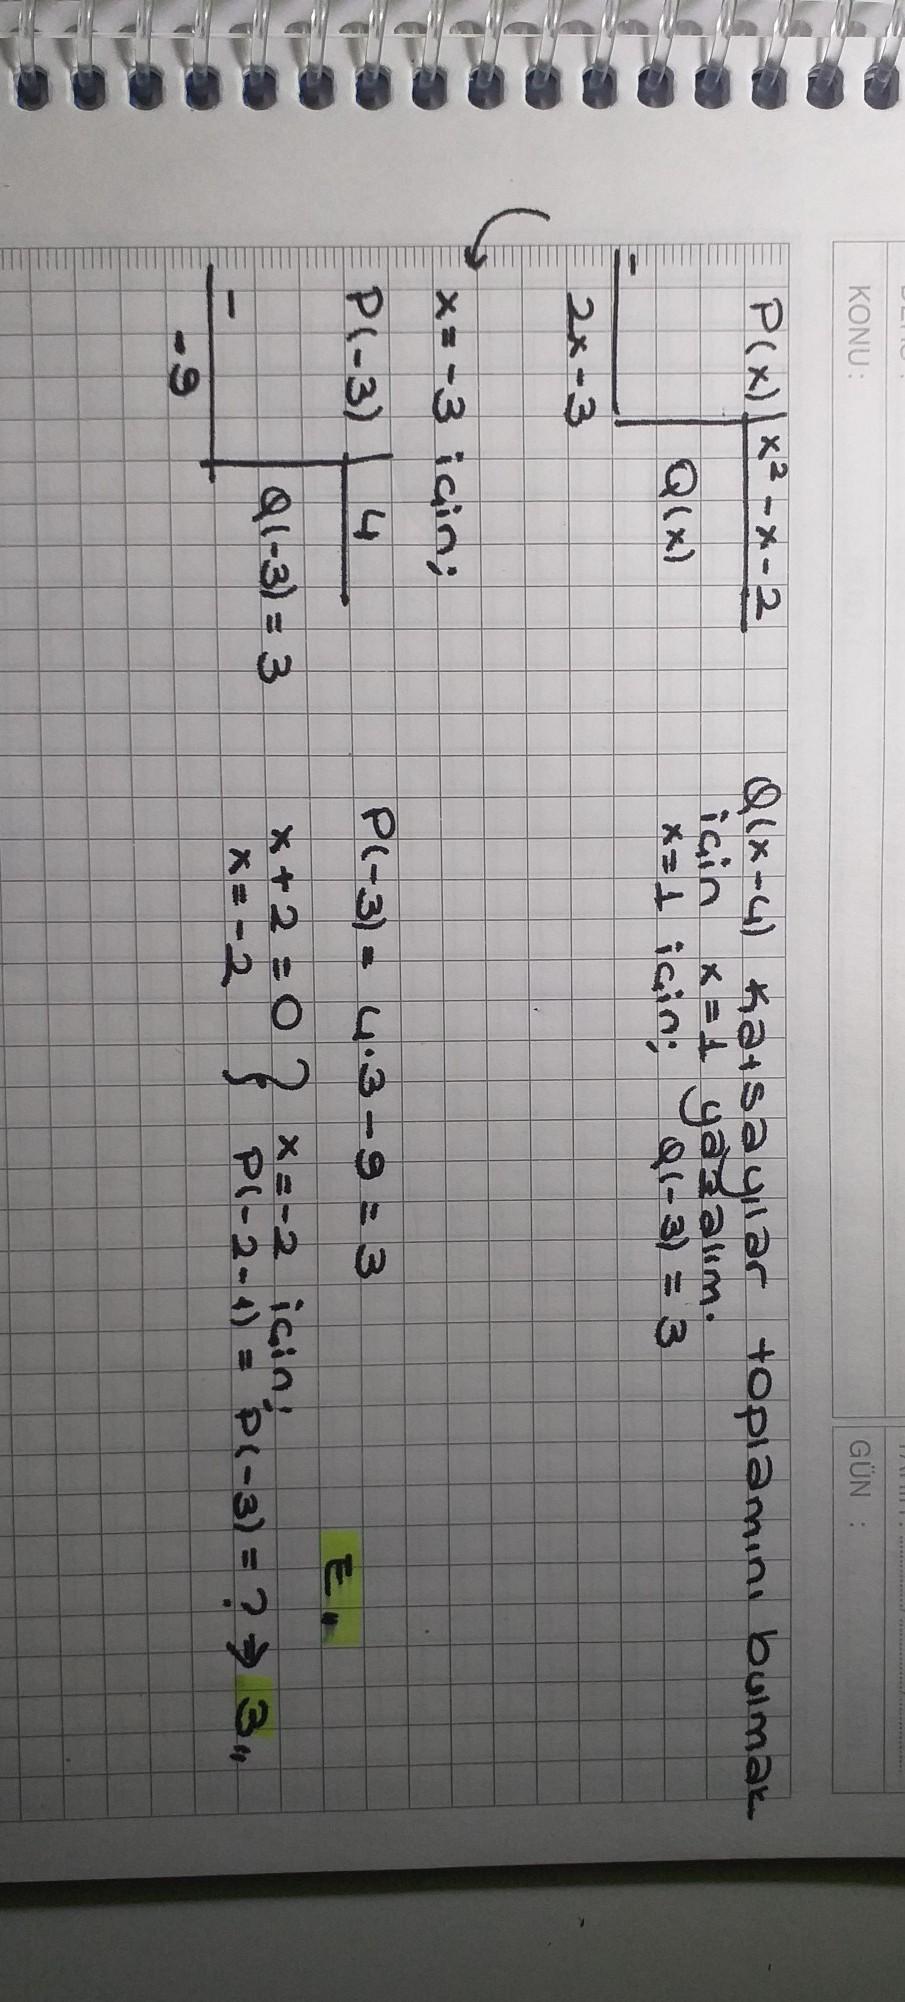 KONU :
GÜN :
P(x) | x² - x - 2
Q(x)
-
2x - 3
x = -3 için;
P(-3) | 4
Q(-3) = 3
-
-9
Q(x-4) katsayılar toplamını bulmak
için x=1 yazalım.
x=1 için; Q(-3) = 3
P(-3) = 4.3 - 9 = 3
x + 2 = 0 } x = -2 için;
x = -2 } P(-2-1) = P(-3) = ? → 3,,
E,,